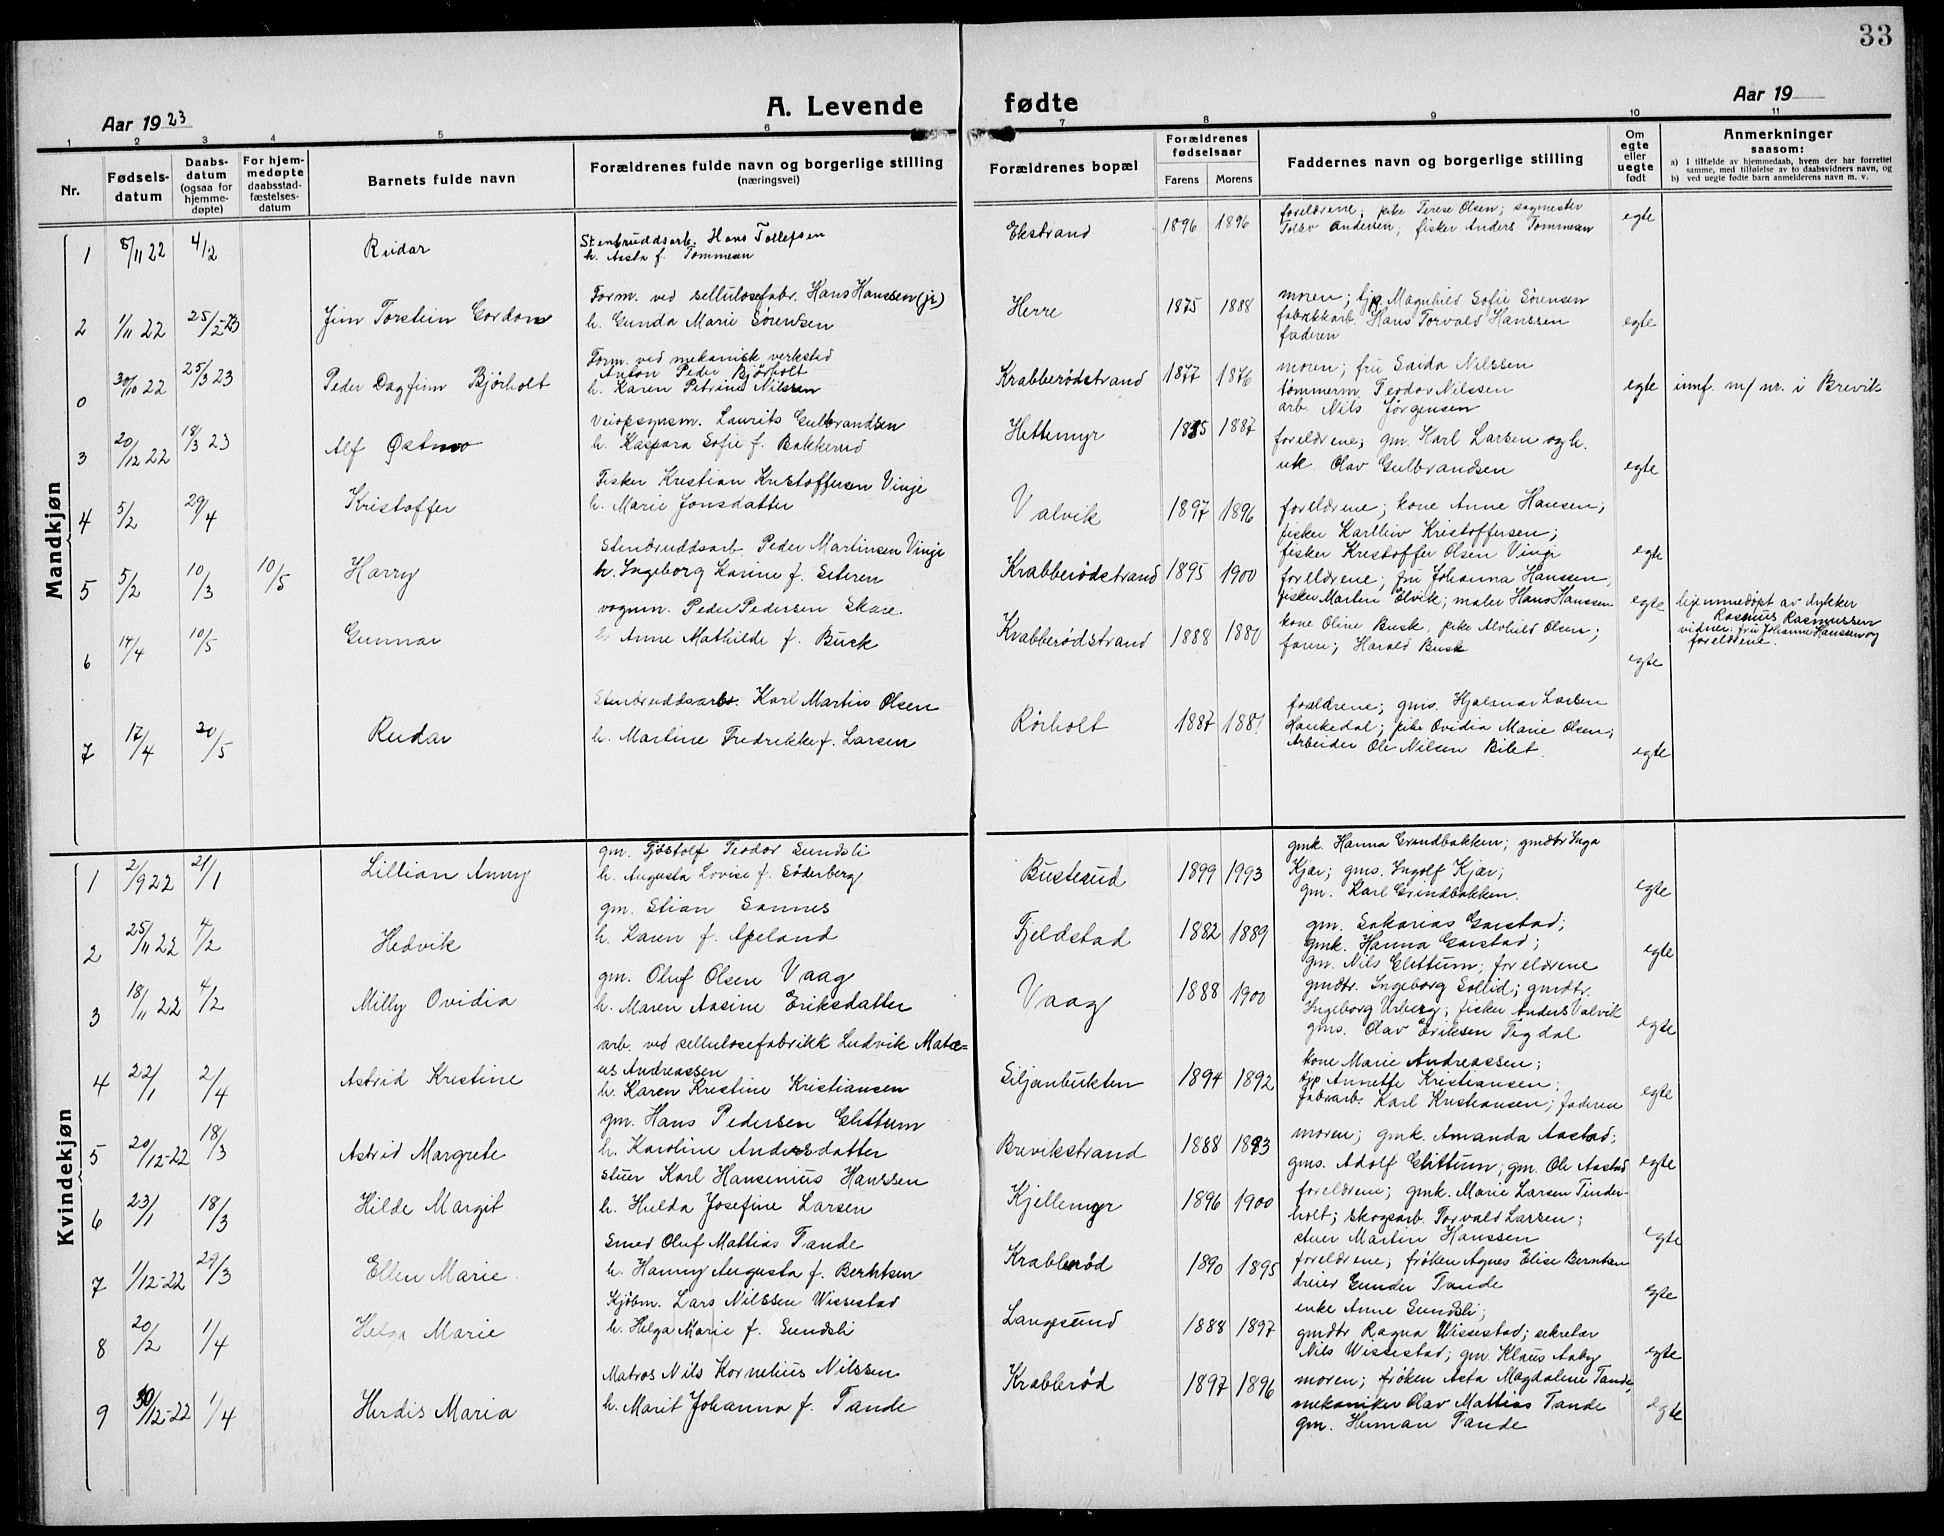 33
Aar 1923
A. Levende fødte
Aar 19
1 2 3 4 5 6 7 8 9 10 11
Nr.
Fødsels-
datum
Daabs-
datum
(ogsaa for
hjemme-
døpte)
For hjem-
medøpte
daabsstad-
fæstelses-
datum
Barnets fulde navn
Forældrenes fulde navn og borgerlige stilling
(næringsvei)
Forældrenes bopæl
Forældrenes
fødselsaar
Farens Morens
Faddernes navn og borgerlige stilling
Om
egte
eller
uegte
født
Anmerkninger
saasom:
a) I tilfælde av hjemmedaab, hvem der har forrettet
samme, med tilføielse av to daabsvidners navn, og
b) ved uegte fødte barn anmelderens navn m. v.
Mandkjøn
1 8/11 22 4/2 Reidar
Stenbruddsarb. Hans Tollefsen
h. Aasta f. Tommesen
Ekstrand 1896 1896
forelærene; pike Terese Olsen; sagmester
Tolav Andersen; fisker Anders Tommesen
egte
2 1/11 22 25/2-23 Jim Torstein Gordon
Form. ved sellulosefabr. Hans Hanssen (jr)
h. Gunda Marie Sørensen
Herre 1875 1888
moren; tjp. Magnhild Sofie Sørensen
fabrikkarb. Hans Torvald Hanssen
faderen
egte
0 30/10 22 25/3 23 Peder Dagfinn Bjørholt
Form. ved mekanisk verksted
Anton Peder Bjørholt
h. Karen Petrine Nilssen
Krabberødstrand 1877 1876
moren; fru Saida Nilssen
tømmerm. Teodor Nilssen
arb. Nils Jørgensen
egte
innf. m/ nr. i Brevik
3 20/12 22 18/3 23 Alf Østmo
Veiopsynsm. Laurits Gulbrandsen
h. Kaspara Sofie f. Bakkerud
Hettemyr 1885 1887
forelærene; gm. Karl Larsen og h.
uk. Olav Gulbrandsen
egte
4 5/2 29/4 Kristoffer
Fisker Kristian Kristoffersen Vinje
h. Marie Jonsdatter
Valvik 1897 1896
forelærene; kone Anne Hansen;
fisker Karlliv Kristoffersen;
fisker Kristoffer Olsen Vinje
egte
5 5/2 10/3 10/5 Harry
Stenbruddsarb. Peder Martinsen Vinje
h. Ingeborg Karine f. Seteren
Krabberødstrand 1895 1900
forelærene; fru Johanna Hanssen,
fisker Martin Elvik; maler Hans Hanssen
egte
hjemmedøpt av dykker
Rasmus Rasmussen
vidner: fru Johanne Hanssen og
forelærene.
6 14/4 10/5 Gunnar
vognm. Peder Pedersen Skare
h. Anne Mathilde f. Buck
Krabberødstrand 1888 1880
kone Oline Busk, pike Alvhild Olsen;
faren; Harald Busk
egte
7 17/4 20/5 Reidar
Stenbruddsarb. Karl Martin Olsen
h. Martine Fredrikke f. Larsen
Rørholt 1887 1881
forældrene; gms. Hjalmar Larsen
Haukedal; pike Ovidia Marie Olsen;
Arbeider Ole Nilsen Bilet.
egte
Kvindekjøn
1 2/9 22 21/1 Lillian Anny
gm. Tjøstolf Teodor Sundsli
h. Augusta Lovise f. Söderberg
Busterud 1899 1993
gmk. Hanna Grindbakken; gmdtr Inga
Kjær; gms. Ingolf Kjær;
gm. Karl Grindbakken.
egte
2 25/11 22 4/2 Hedvik
gm. Stian Sannes
h. Karen f. Apeland
Fjeldstad 1882 1889
gm. Sakarias Garstad;
gmk. Hanna Garstad;
gm. Nils Glittum; forelærene
egte
3 18/11 22 4/2 Milly Ovidia
gm. Oluf Olsen Vaag
h. Maren Aasine Eriksdatter
Vaag 1888 1900
gmdtr. Ingeborg Sollid; gmdtr.
Ingeborg Urberg; fisker Anders Valvik
gms. Olav Eriksen Tegdal
egte
4 22/1 2/4 Astrid Kristine
arb. ved sellulosefabrikk Ludvik Mate=
us Andreassen
h. Karen Kristine Kristiansen
Siljanbukten 1894 1892
kone Marie Andreassen;
tjp Annette Kristiansen;
fabrarb. Karl Kristiansen; faderen
egte
5 20/12-22 18/3 Astrid Margrete
gm. Hans Pedersen Glittum
h. Karoline Andersdatter
Brevikstrand 1888 1893
moren; gmk. Amanda Aastad;
gms. Adolf Glittum; gm. Ole Aastad
egte
6 23/1 18/3 Hilde Margit
stuer Karl Hansenius Hanssen
h. Hulda Josefine Larsen
Kjellemyr 1896 1900
forelærene; gmk. Marie Larsen Tinder-
holt; skogsarb. Torvald Larsen;
stuer Martin Hanssen
egte
7 1/12-22 29/3 Ellen Marie
Smed Oluf Mattias Tande
h. Hanny Augusta f. Berntsen
Krabberød 1890 1895
forelærene; frøken Agnes Elise Berntsen
dreier Gunder Tande
egte
8 20/2 1/4 Helga Marie
Kjøbm. Lars Nilssen Wissestad
h. Helga Marie f. Sundsli
Langesund 1888 1897
enke Anne Sundsli;
gmdtr Ragna Wissestad; sekretær
Nils Wissestad; gm. Klaus Aaby
egte
9 30/12-22 1/4 Herdis Maria
Matros Nils Kornelius Nilssen
h. Marit Johanna f. Tande
Krabberød 1897 1896
moren; frøken Asta Magdalene Tande,
mekaniker Olav Mattias Tande
gm. Herman Tande
egte